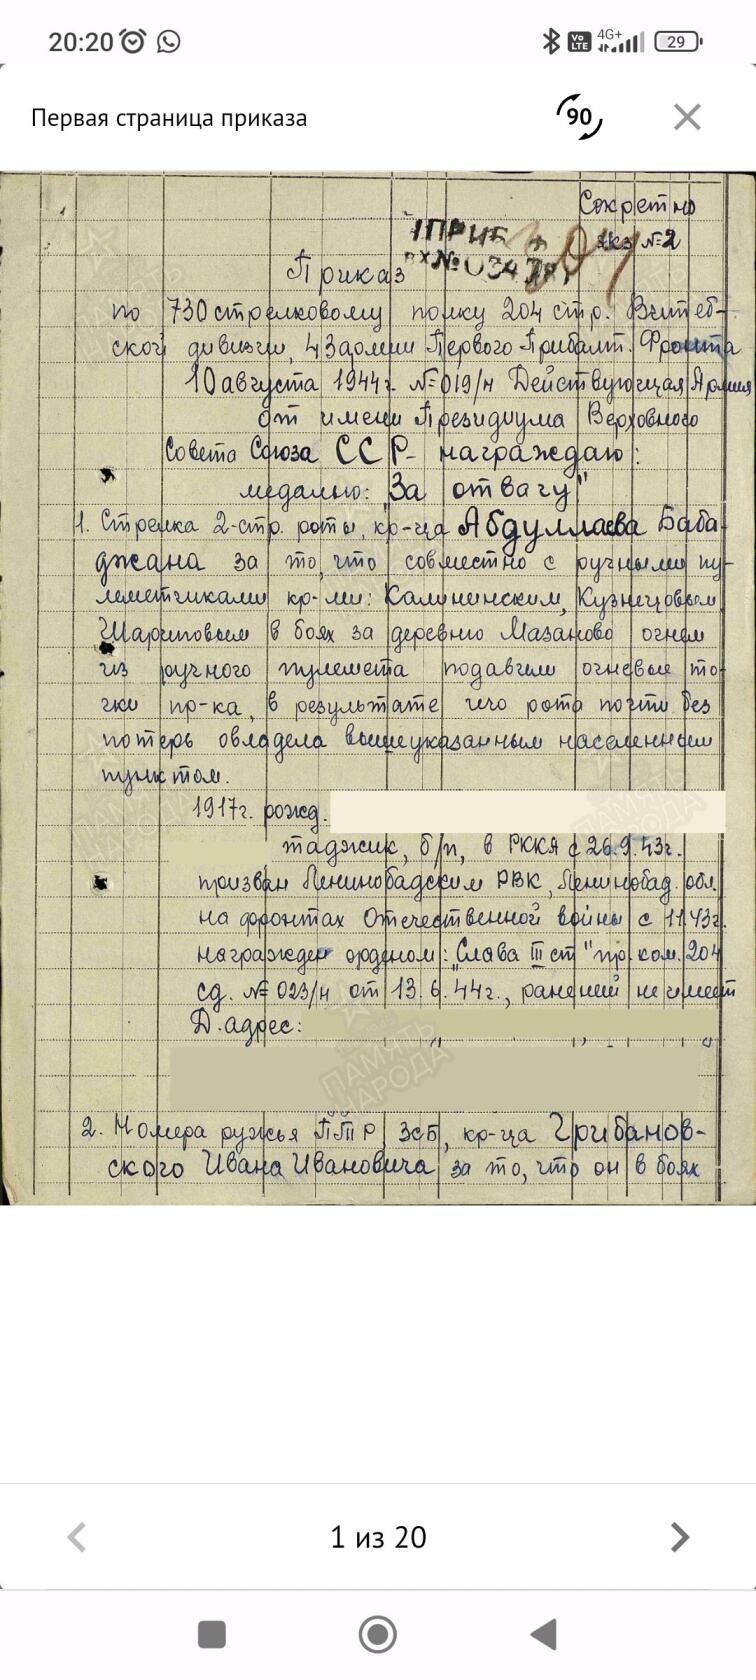 20:20
4G+
Vo LTE
29
Первая страница приказа
90
Секретно
экз №2
1ПРИБ
вх№ 0347
Приказ
по 730 стрелковому полку 204 стр. Витеб-
ской дивизии, 43 армии Первого Прибалт. Фронта
10 августа 1944г. №019/н Действующая Армия
от имени Президиума Верховного
Совета Союза ССР- награждаю:
медалью: "За отвагу"
1. Стрелка 2-стр. роты, кр-ца Абдуллаева Баба-
джана за то, что совместно с ручными пу-
леметчиками кр-ми: Калининским, Кузнецовым
Шариповым в боях за деревню Мазаново огнем
из ручного пулемета подавили огневые то-
чки пр-ка, в результате чего рота почти без
потерь овладела вышеуказанным населенным
пунктом.
1917г. рожд.
таджик, б/п, в РККА с 26.9.43г.
призван Ленинобадским РВК, Ленинобад. обл.
на фронтах Отечественной войны с 11.43г.
награжден орденом: "Слава III ст" пр. ком. 204
сд. №023/н от 13.6.44г., ранений не имеет
Д. адрес:
ПАМЯТЬ НАРОДА
2. Номера ружья ПТР, 3сб, кр-ца Грибанов-
ского Ивана Ивановича за то, что он в боях
1 из 20